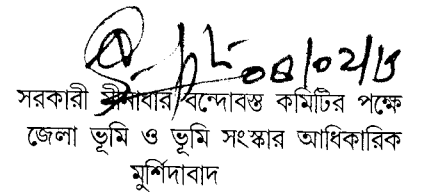 08/02/13
সরকারী বন্দোবস্ত কমিটির পক্ষে
জেলা ভূমি ও ভূমি সংস্কার আধিকারিক
মুর্শিদাবাদ